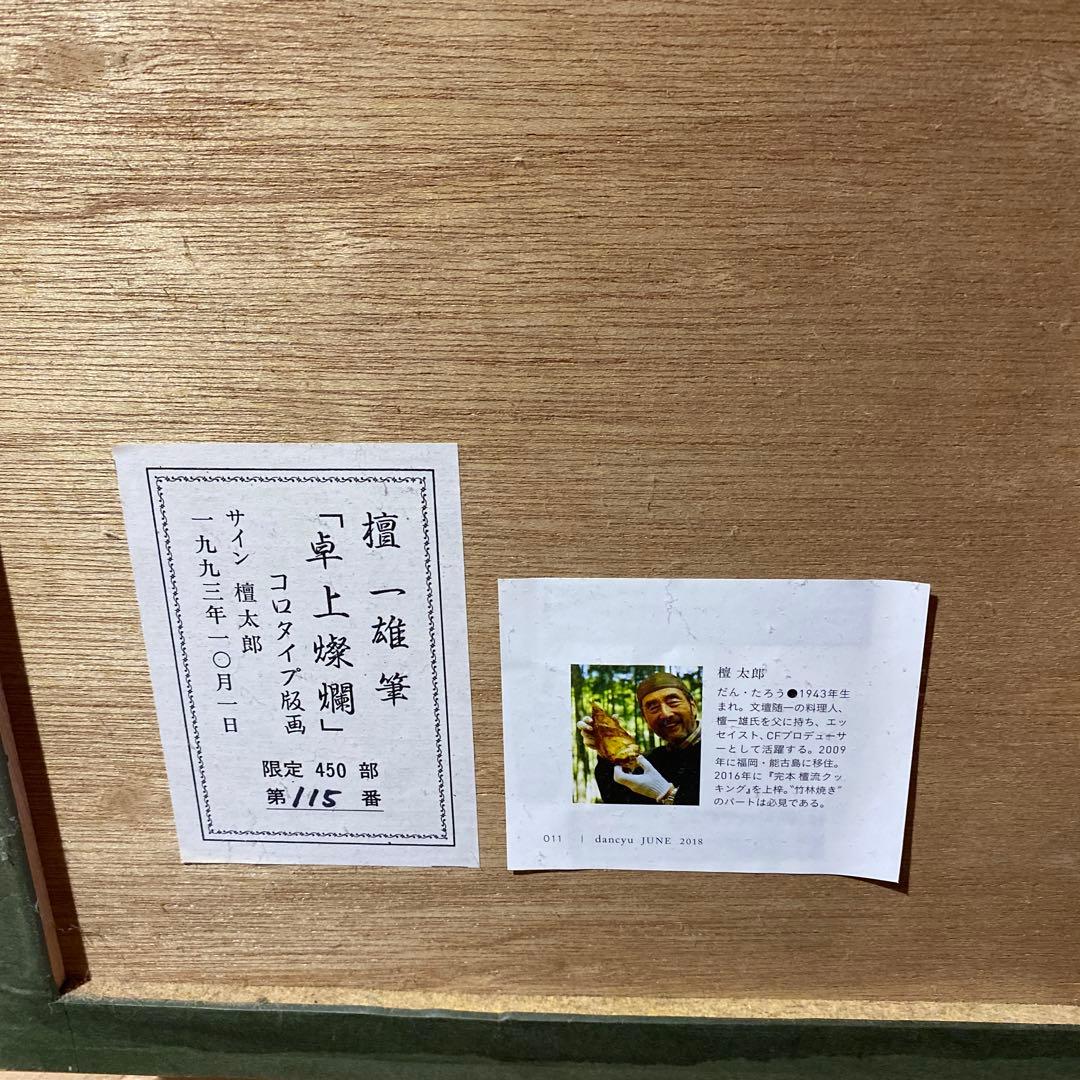 檀 一雄 筆
「卓上燦爛」
コロタイプ版画
サイン 檀太郎
一九九三年一〇月一日
限定 450 部
第 115 番
檀 太郎
だん・たろう●1943年生
まれ。文壇随一の料理人、
檀一雄氏を父に持ち、エッ
セイスト、CFプロデューサ
ーとして活躍する。2009
年に福岡・能古島に移住。
2016年に『完本 檀流クッ
キング』を上梓。“竹林焼き”
のパートは必見である。
011 | dancyu JUNE 2018